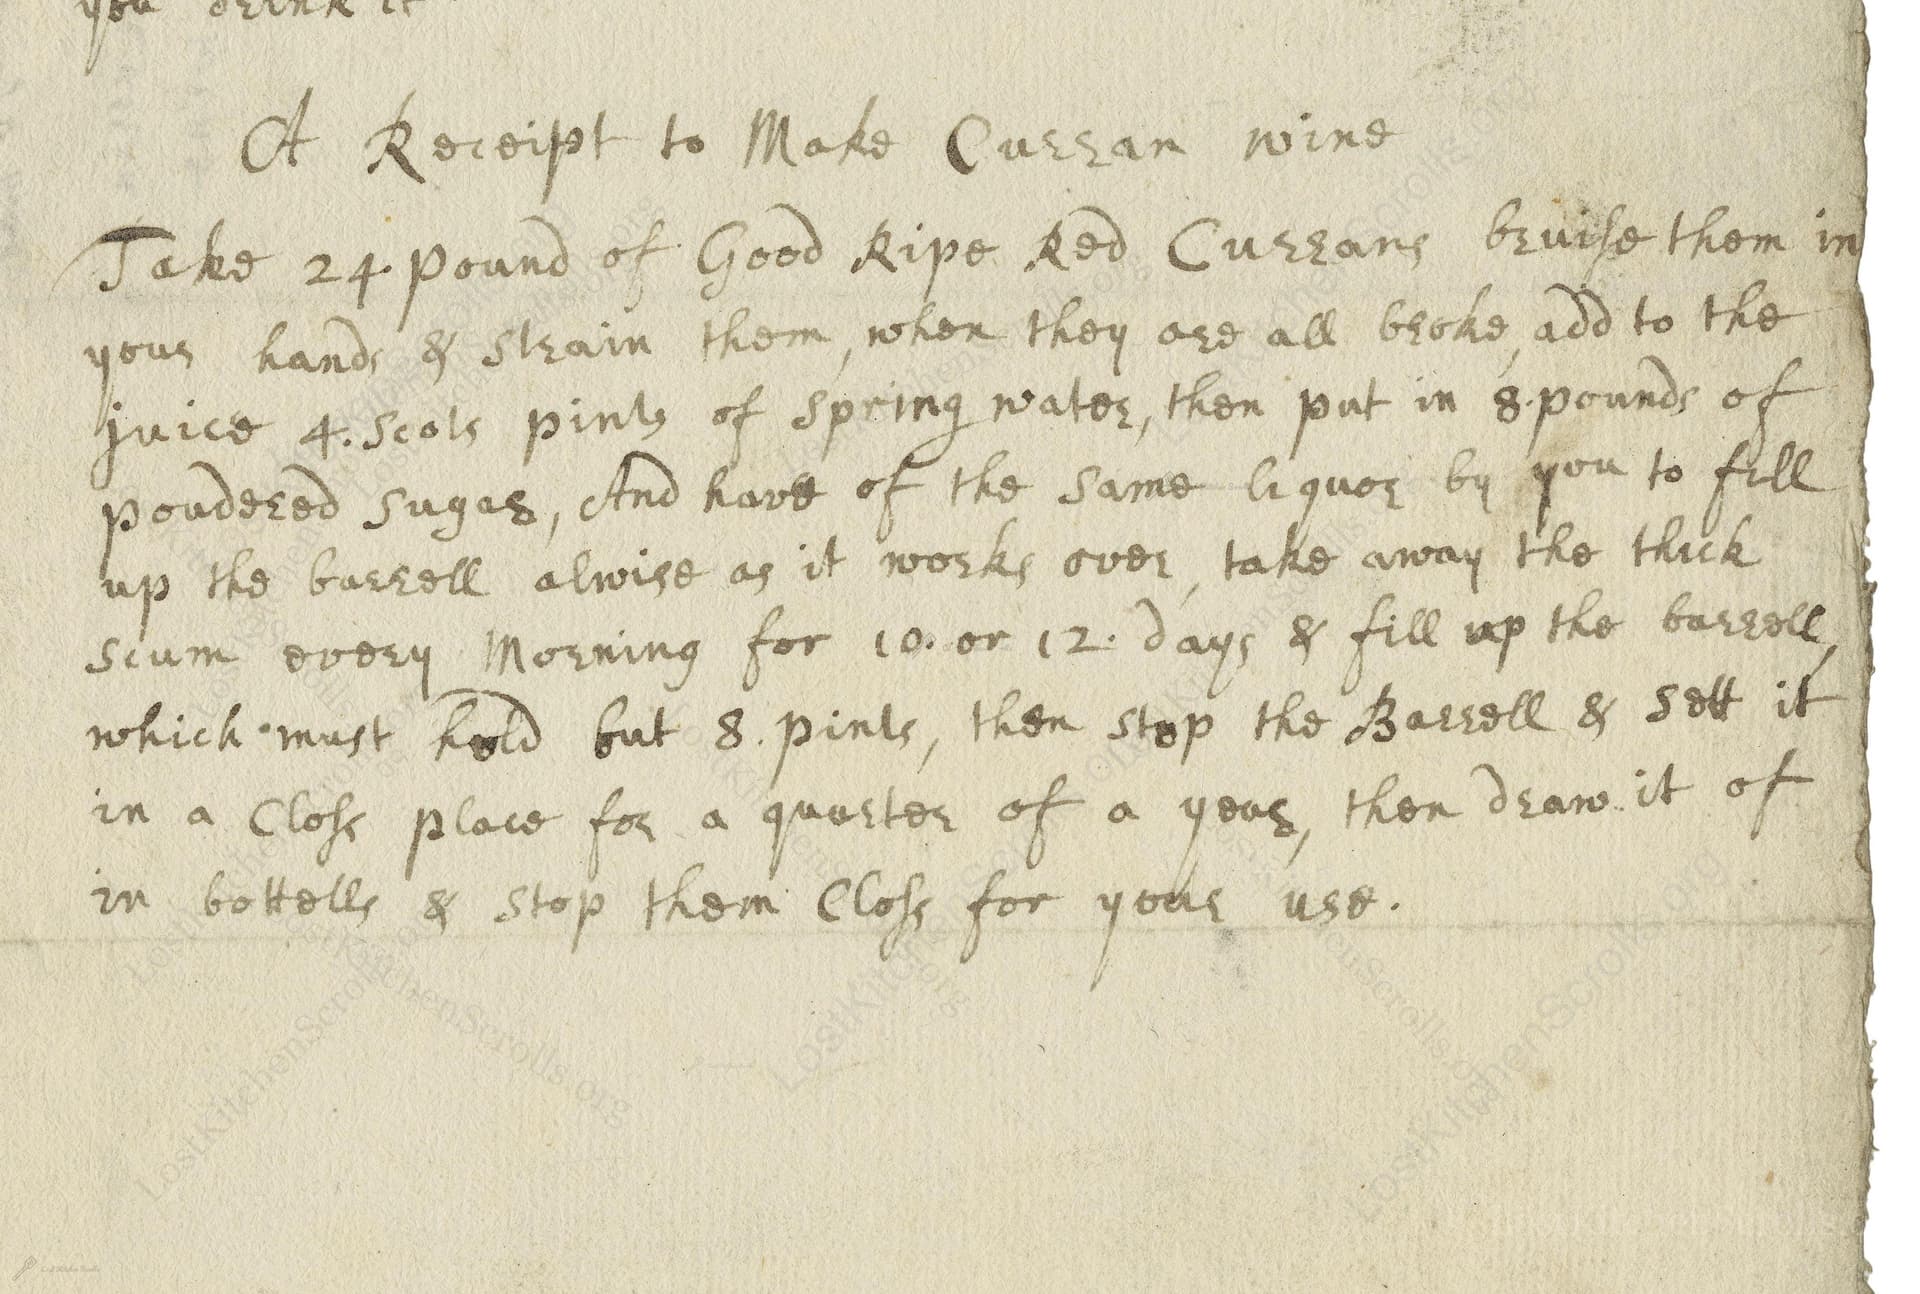 you drink it
A Receipt to Make Curran wine
Take 24. pound of Good Ripe Red Currans bruise them in
your hands & strain them, when they are all broke, add to the
juice 4. Scots pints of spring water, then put in 8. pounds of
poudered sugar, And have of the same liquor by you to fill
up the barrell alwise as it works over, take away the thick
scum every Morning for 10. or 12. days & fill up the barrell,
which must hold but 8. pints, then stop the Barrell & sett it
in a Closs place for a quarter of a year, then draw it of
in bottells & stop them Closs for your use.
LostKitchenScrolls.org